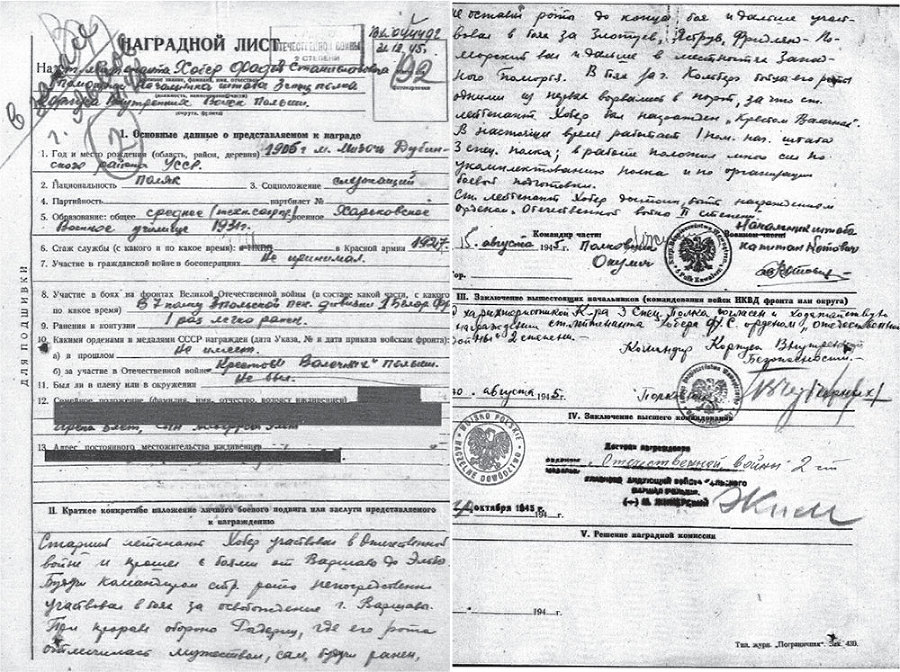 НАГРАДНОЙ ЛИСТ
21.12.45.
92
Ст. лейтенанта Хобер Станиславовича
Помощник начальника штаба 3 спец. полка
Корпуса Внутренних Войск Польши.
I. Основные данные о представляемом к награде
1. Год и место рождения (область, район, деревня) 1906 г. м. Мизоч Дубин-
ского района УССР.
2. Национальность поляк 3. Соцположение служащий
4. Партийность партбилет №
5. Образование: общее среднее военное Харьковское
Военное училище 1931 г.
6. Стаж службы (с какого и по какое время): в НКВД в Красной армии 1927
7. Участие в гражданской войне и боеоперациях Не принимал.
8. Участие в боях на фронтах Великой Отечественной войны (в составе какой части, с какого
по какое время) В 7 полку польской пех. дивизии 1 Белор. Фр.
9. Ранения и контузии 1 раз легко ранен.
10. Какими орденами и медалями СССР награжден (дата Указа, № и дата приказа войскам фронта):
а) в прошлом Не имеет.
б) за участие в Отечественной войне Крестом Валечных Польши.
11. Был ли в плену или в окружении Не был.
12. Семейное положение (фамилия, имя, отчество, возраст иждивенцев)
13. Адрес постоянного местожительства иждивенцев
ДЛЯ ПОДШИВКИ
II. Краткое конкретное изложение личного боевого подвига или заслуги представляемого
к награждению
Старший лейтенант Хобер участвовал в Отечественной
войне и прошел с боями от Варшавы до Эльбы
Будучи командиром стр. роты непосредственно
участвовал в боях за освобождение г. Варшавы.
При прорыве обороны где его рота
отличилась мужеством, сам, будучи ранен,
не оставил роты до конца боя и дальше участ-
вовал в боях за Злотув, Яструв, Фридлянд По-
морский и дальше в местностях Запад-
ного Поморья. В боях за г. Кольберг бойцы его роты
одними из первых ворвались в порт, за что ст.
лейтенант Хобер был награжден „Крестом Валечных“.
В настоящее время работает I пом. нач. штаба
3 спец. полка; в работе положил много сил по
укомплектованию полка и по организации
боевой подготовки.
Ст. лейтенант Хобер достоин быть награжденным
Орденом „Отечественной войны II степени“.
Командир части: Начальник штаба
15. августа 1945 г. Полковник капитан Котович
Окулич
III. Заключение вышестоящих начальников (командования войск НКВД фронта или округа)
С характеристикой К-ра 3 Спец. Полка согласен и ходатайствую
о награждении ст. лейтенанта Хобера Ф. С. орденом „Отечественной
войны“ 2 степени.
Командир Корпуса Внутренней
Безопасности.
августа 1945 г. Полковник
IV. Заключение высшего командования
WOJSKO POLSKIE
NACZELNE DOWÓDZTWO
Достоин награждения
орденом „Отечественной войны 2 ст
медалью
октября 1945 г.
194 г.
V. Решение наградной комиссии
194 г.
Тип. журн. „Пограничник“. Зак. 430.